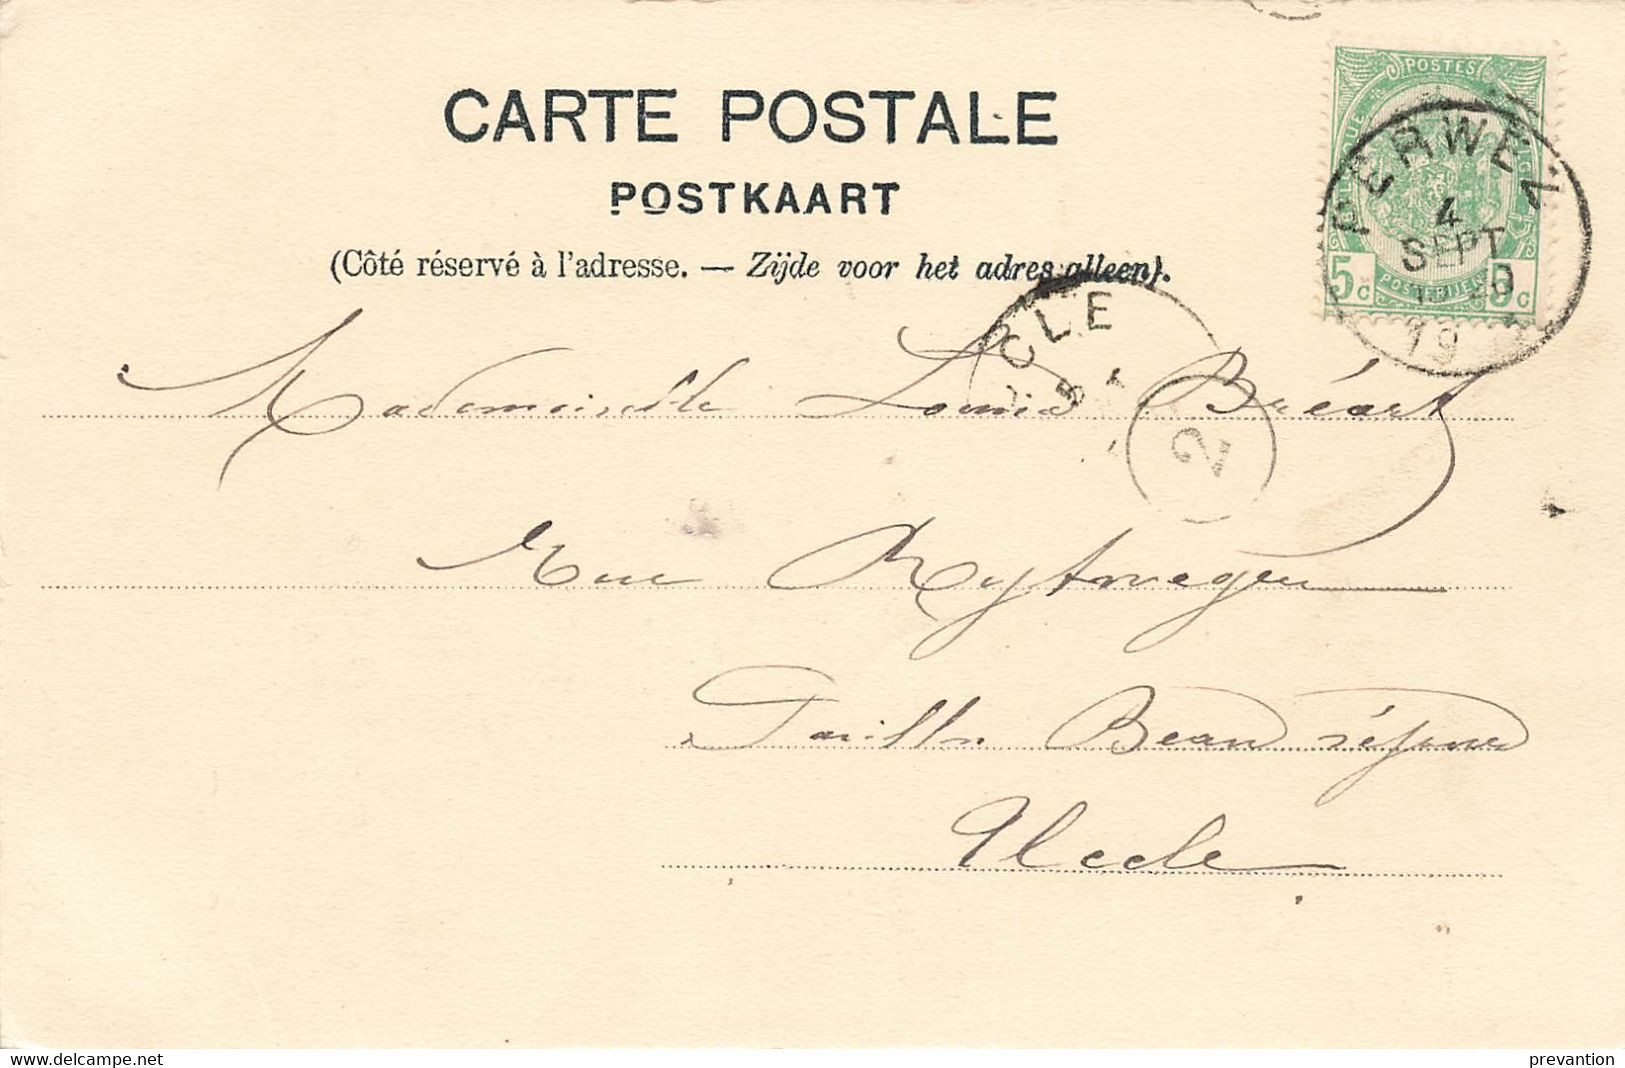 CARTE POSTALE
POSTKAART
(Côté réservé à l'adresse. — Zijde voor het adres alleen).
POSTES
5c POSTERIJEN 5c
PERWEZ
4
SEPT
19
CLE
5
2
Mademoiselle Louisa Bréart
Rue Rytweger
Beau séjour
Uccle
www.delcampe.net
prevantion